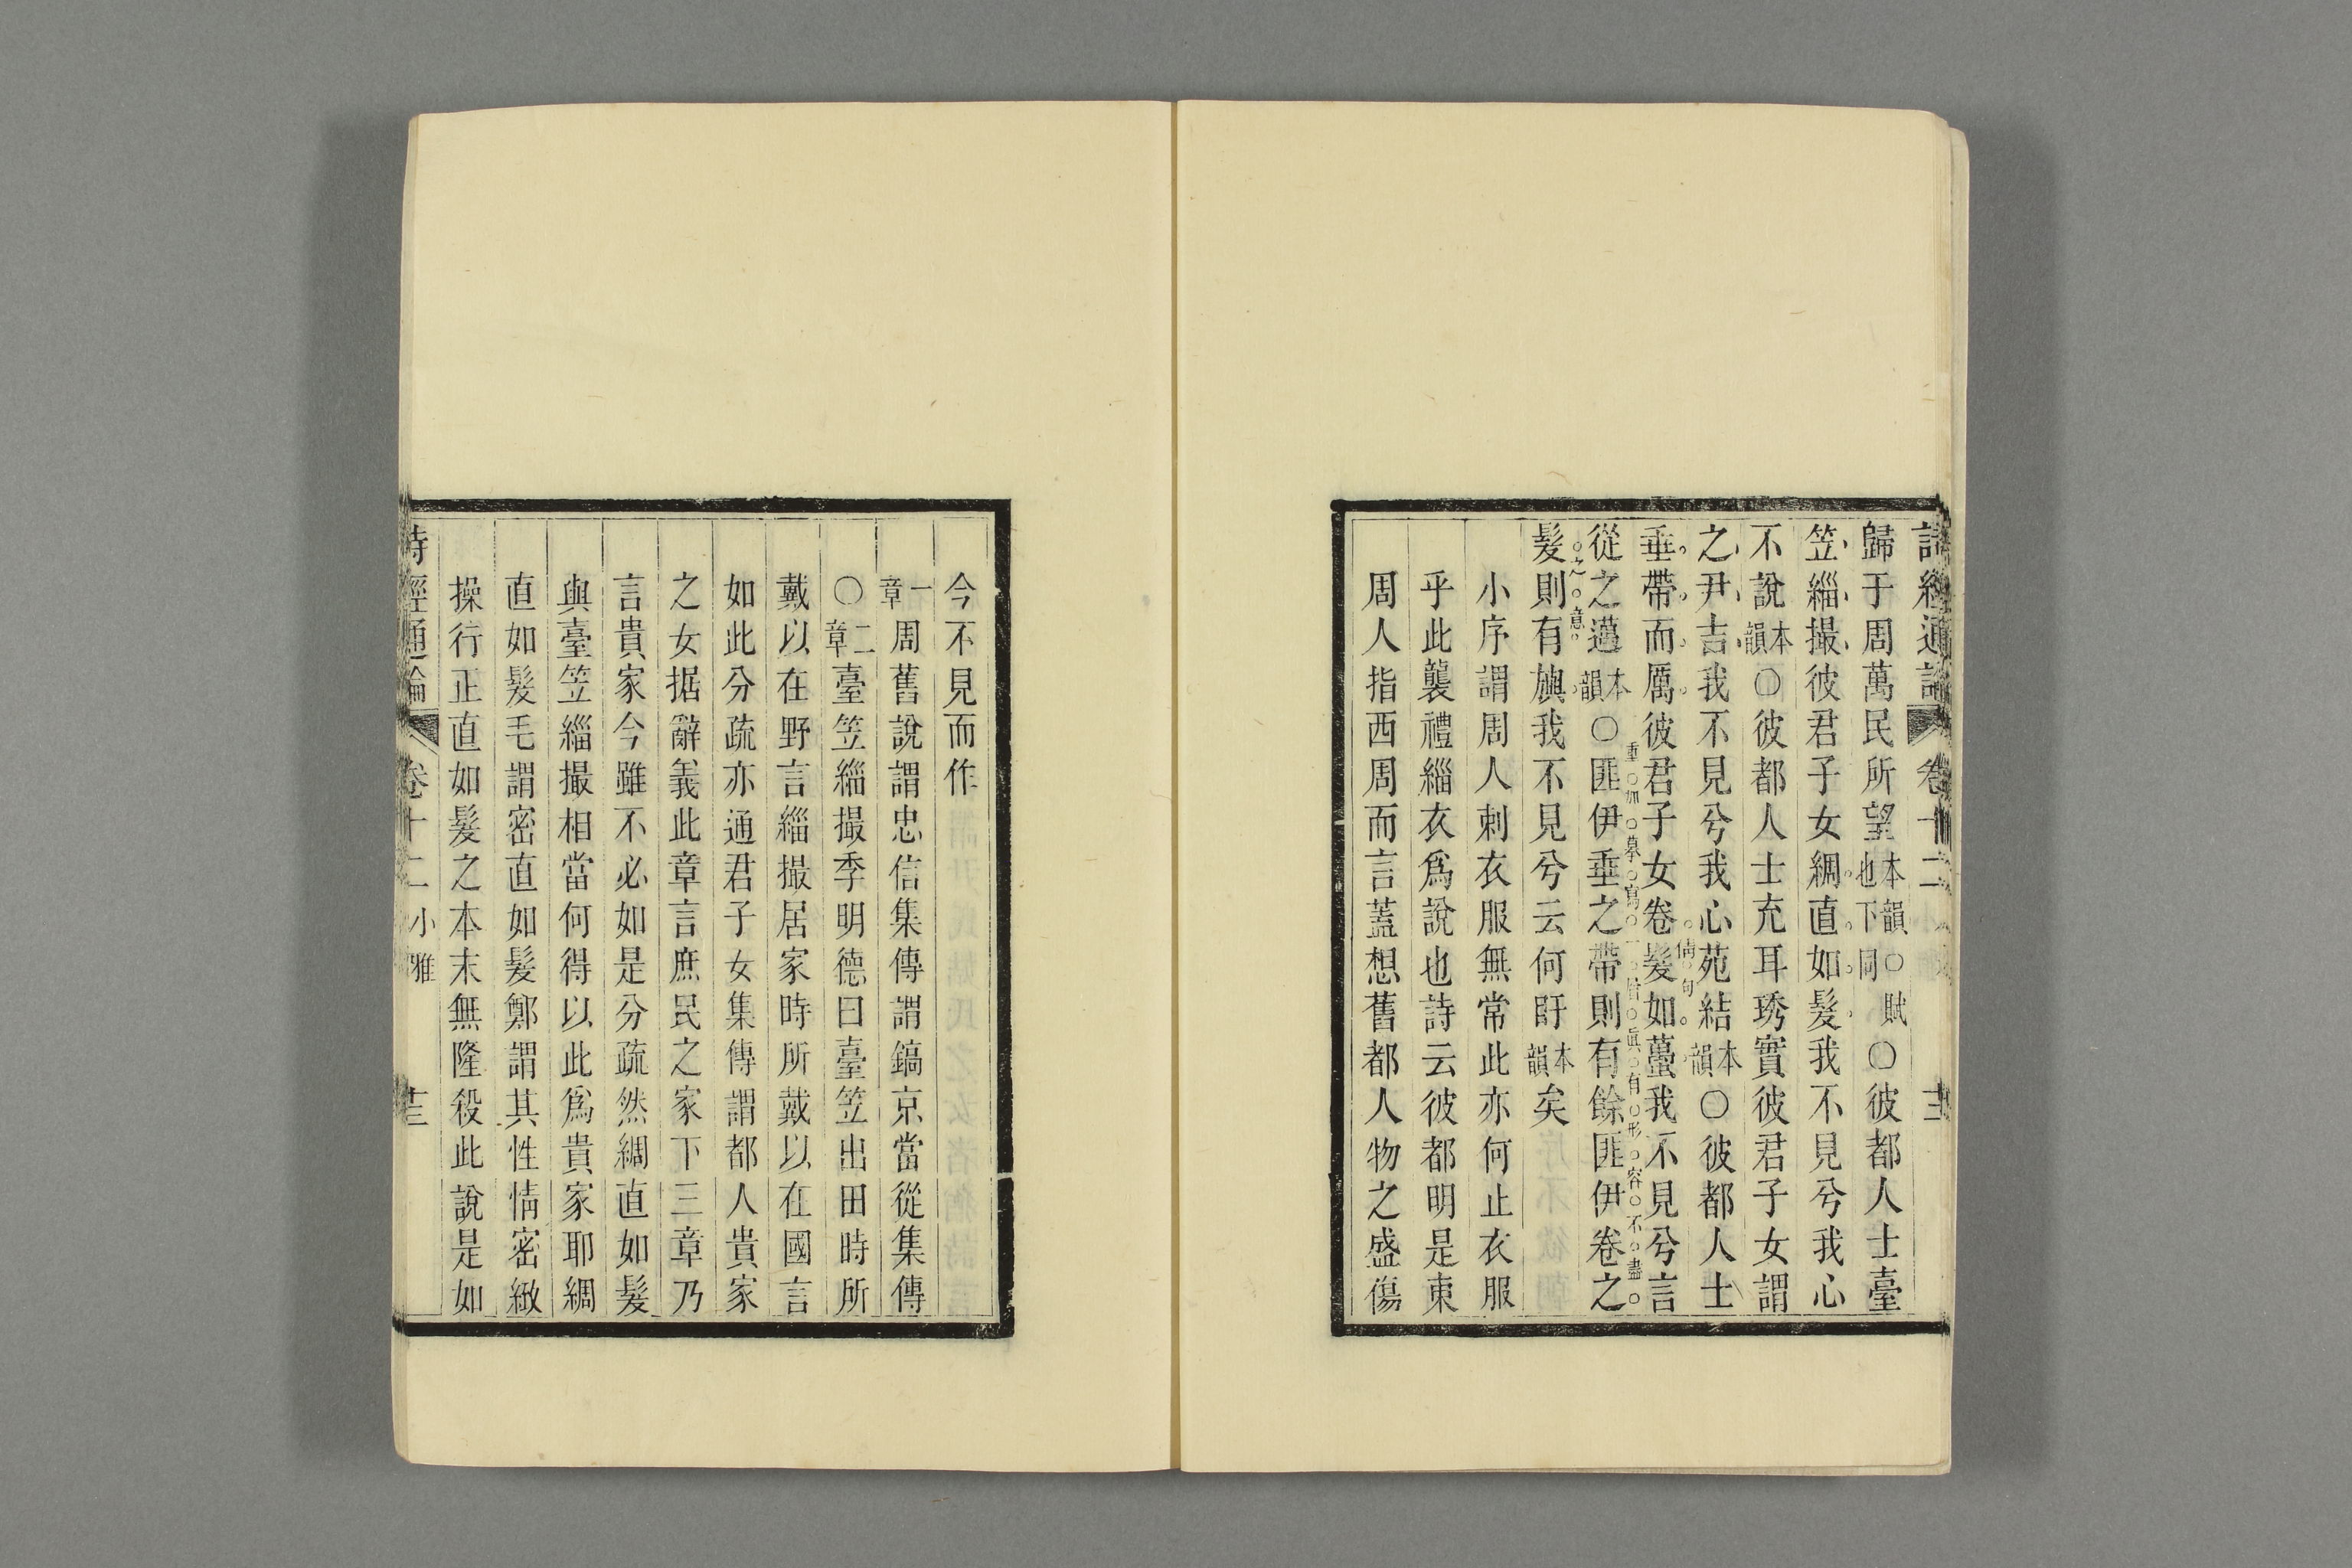 詩經通論 卷十二 十三
歸于周萬民所望本韻○賦也下同○彼都人士臺
笠緇撮彼君子女綢直如髮我不見兮我心
不說本韻○彼都人士充耳琇實彼君子女謂
之尹吉我不見兮我心苑結本韻○彼都人士
倩句
垂帶而厲彼君子女卷髮如蠆我不見兮言
重加摹寫一有形容不盡
從之邁本韻○匪伊垂之帶則有餘匪伊卷之
之意
髮則有旟我不見兮云何盱本韻矣
小序謂周人刺衣服無常此亦何止衣服
乎此襲禮緇衣爲說也詩云彼都明是東
周人指西周而言蓋想舊都人物之盛傷
今不見而作
一章周舊說謂忠信集傳謂鎬京當從集傳
○二章臺笠緇撮季明德曰臺笠出田時所
戴以在野言緇撮居家時所戴以在國言
如此分疏亦通君子女集傳謂都人貴家
之女据辭義此章言庶民之家下三章乃
言貴家今雖不必如是分疏然綢直如髮
與臺笠緇撮相當何得以此爲貴家耶綢
直如髮毛謂密直如髮鄭謂其性情密緻
操行正直如髮之本末無隆殺此說是如
詩經通論 卷十二 小雅 十三